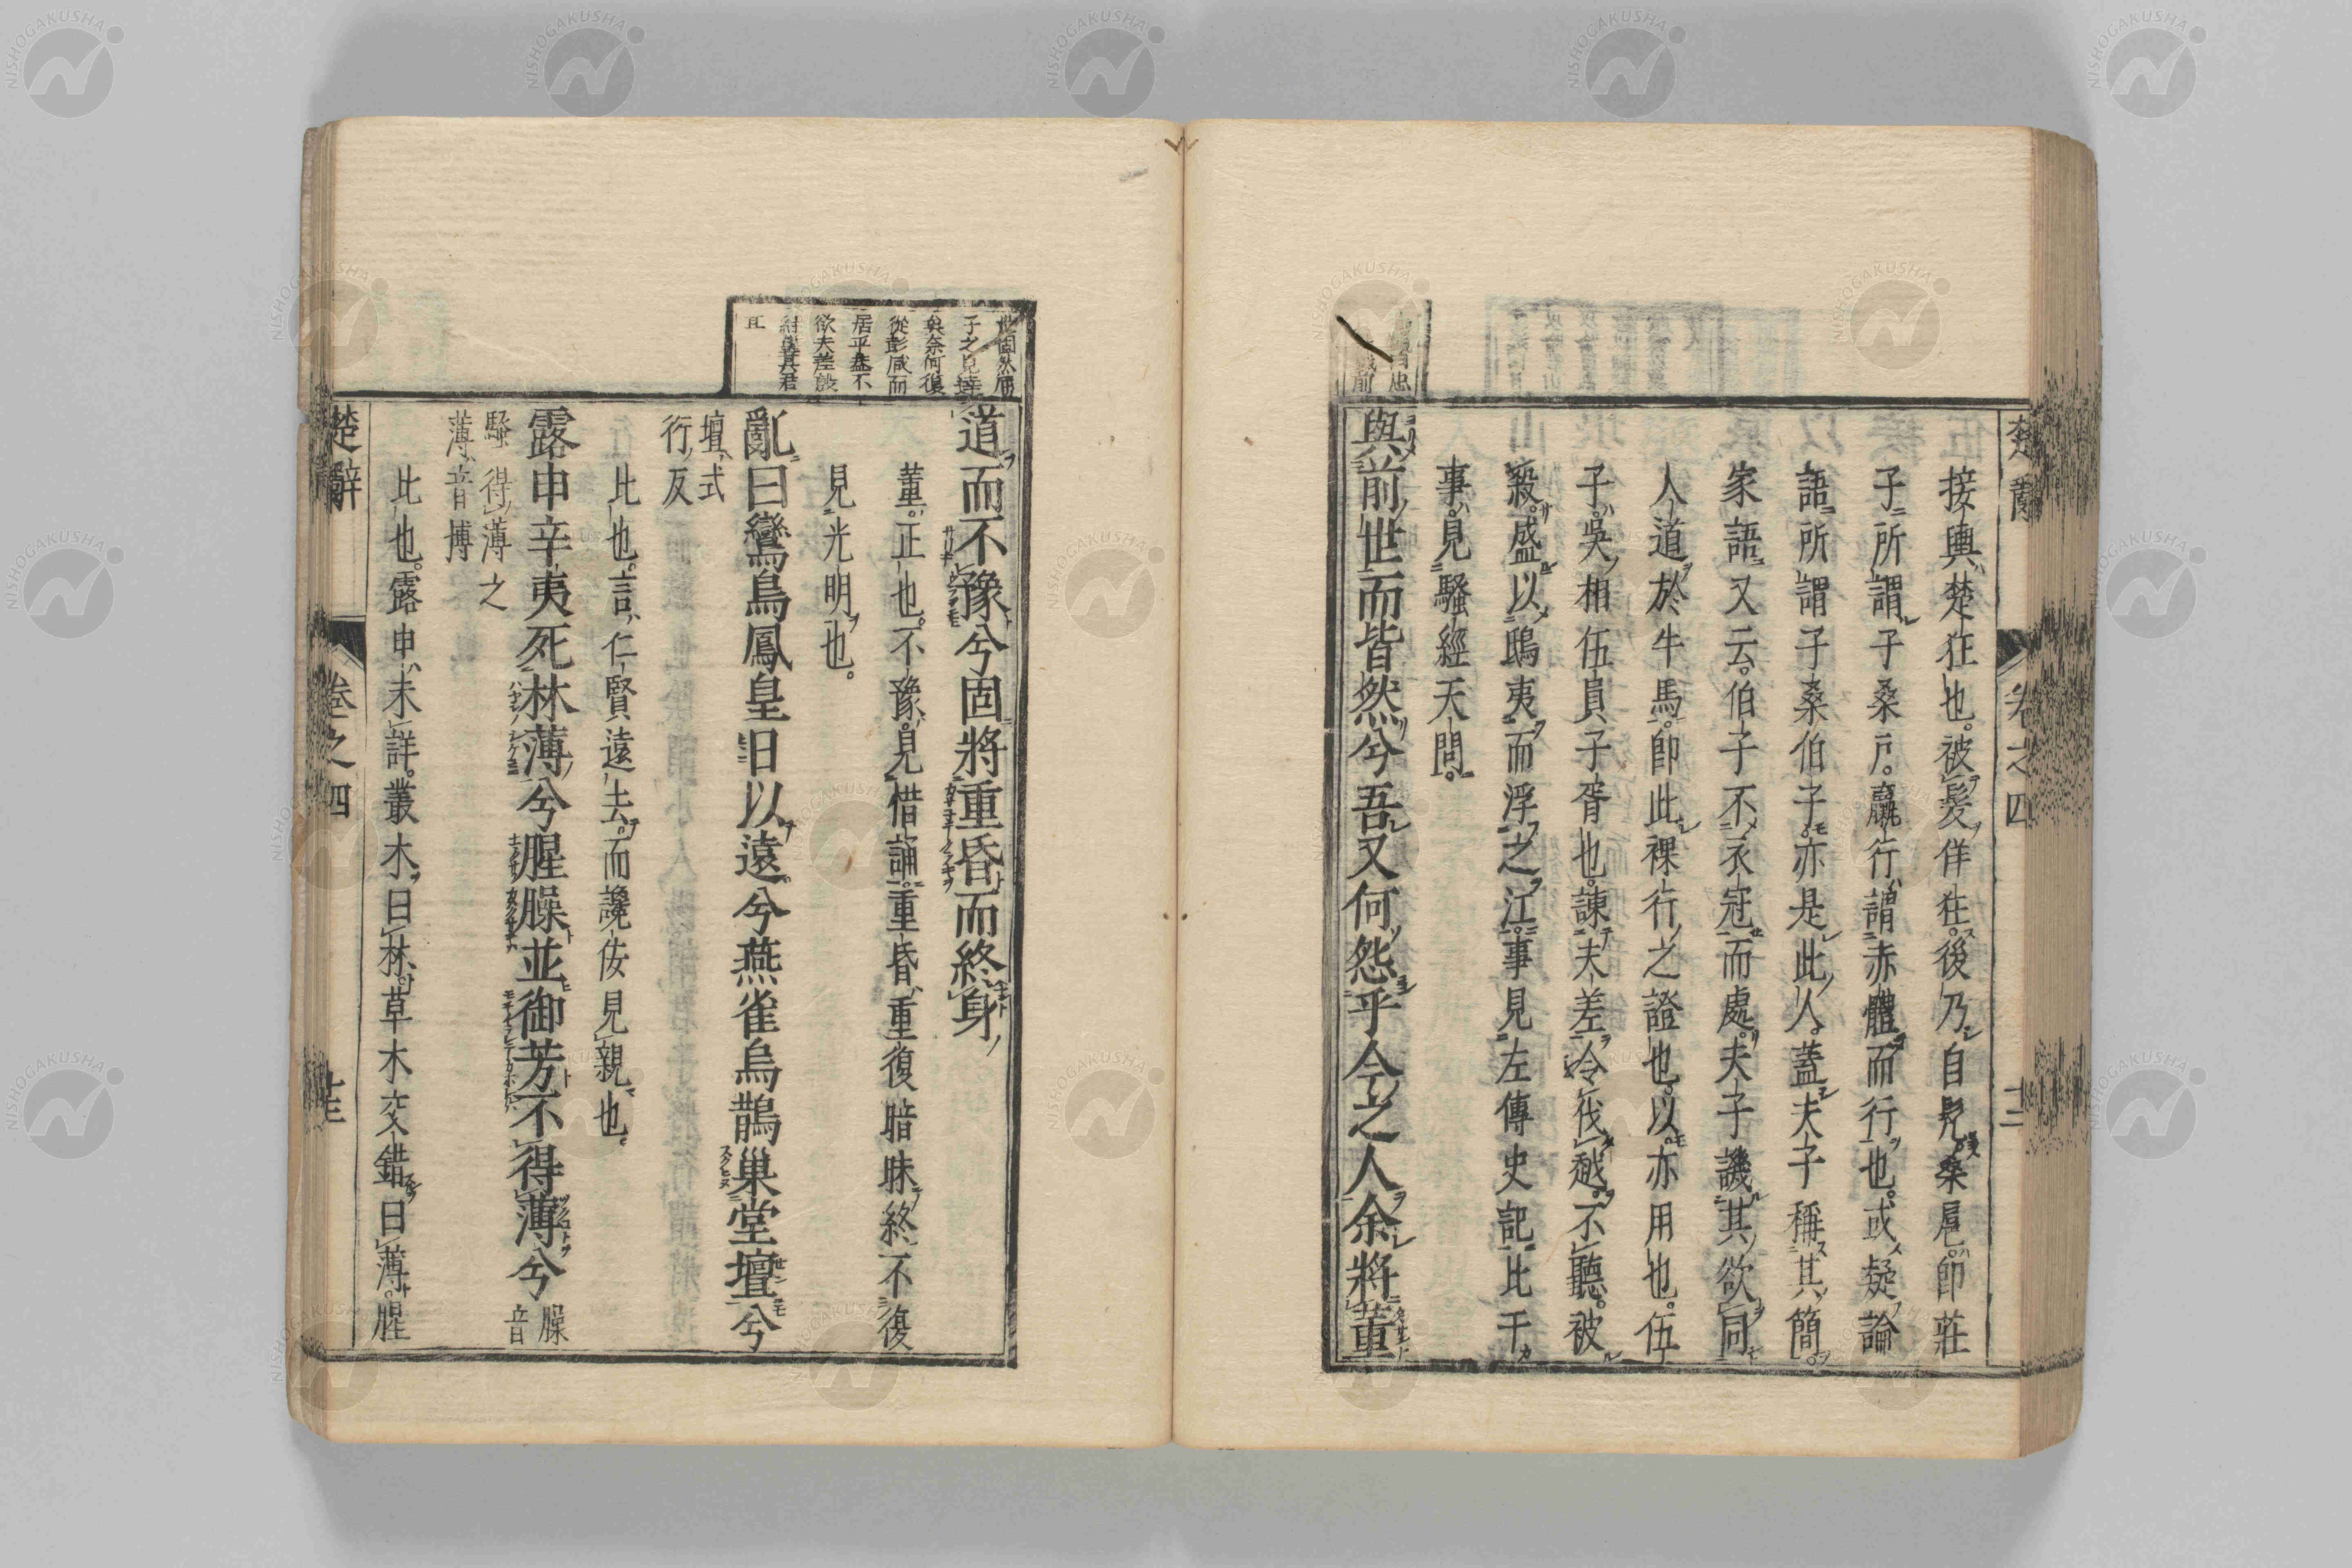 楚辭 卷之四 十二
接輿楚狂也。被髮佯狂。後乃自髡桑扈。卽莊
子所謂子桑戶。臝行謂赤體而行也。或疑論
語所謂子桑伯子。亦是此人。蓋夫子稱其簡。
家語又云。伯子不衣冠而處。夫子譏其欲同
人道於牛馬。卽此裸行之證也。以亦用也。伍
子吳相伍員子胥也。諫夫差令伐越。不聽。被
殺。盛以鴟夷而浮之江。事見左傳史記。比干
事。見騷經天問。
與前世而皆然兮吾又何怨乎今之人余將董
世固然屈
子之見達
矣奈何復
從彭咸而
居乎蓋不
欲夫差殷
紂與其君
耳
道而不豫兮固將重昏而終身
董。正也。不豫。見惜誦。重昏。重復暗昧。終不復
見光明也。
亂曰鸞鳥鳳皇日以遠兮燕雀烏鵲巢堂壇兮
壇式
行反
比也。言仁賢遠去。而讒佞見親也。
露申辛夷死林薄兮腥臊並御芳不得薄兮 臊
音
騷得薄之
薄音博
比也。露申未詳。叢木曰林。草木交錯曰薄。腥
楚辭 卷之四